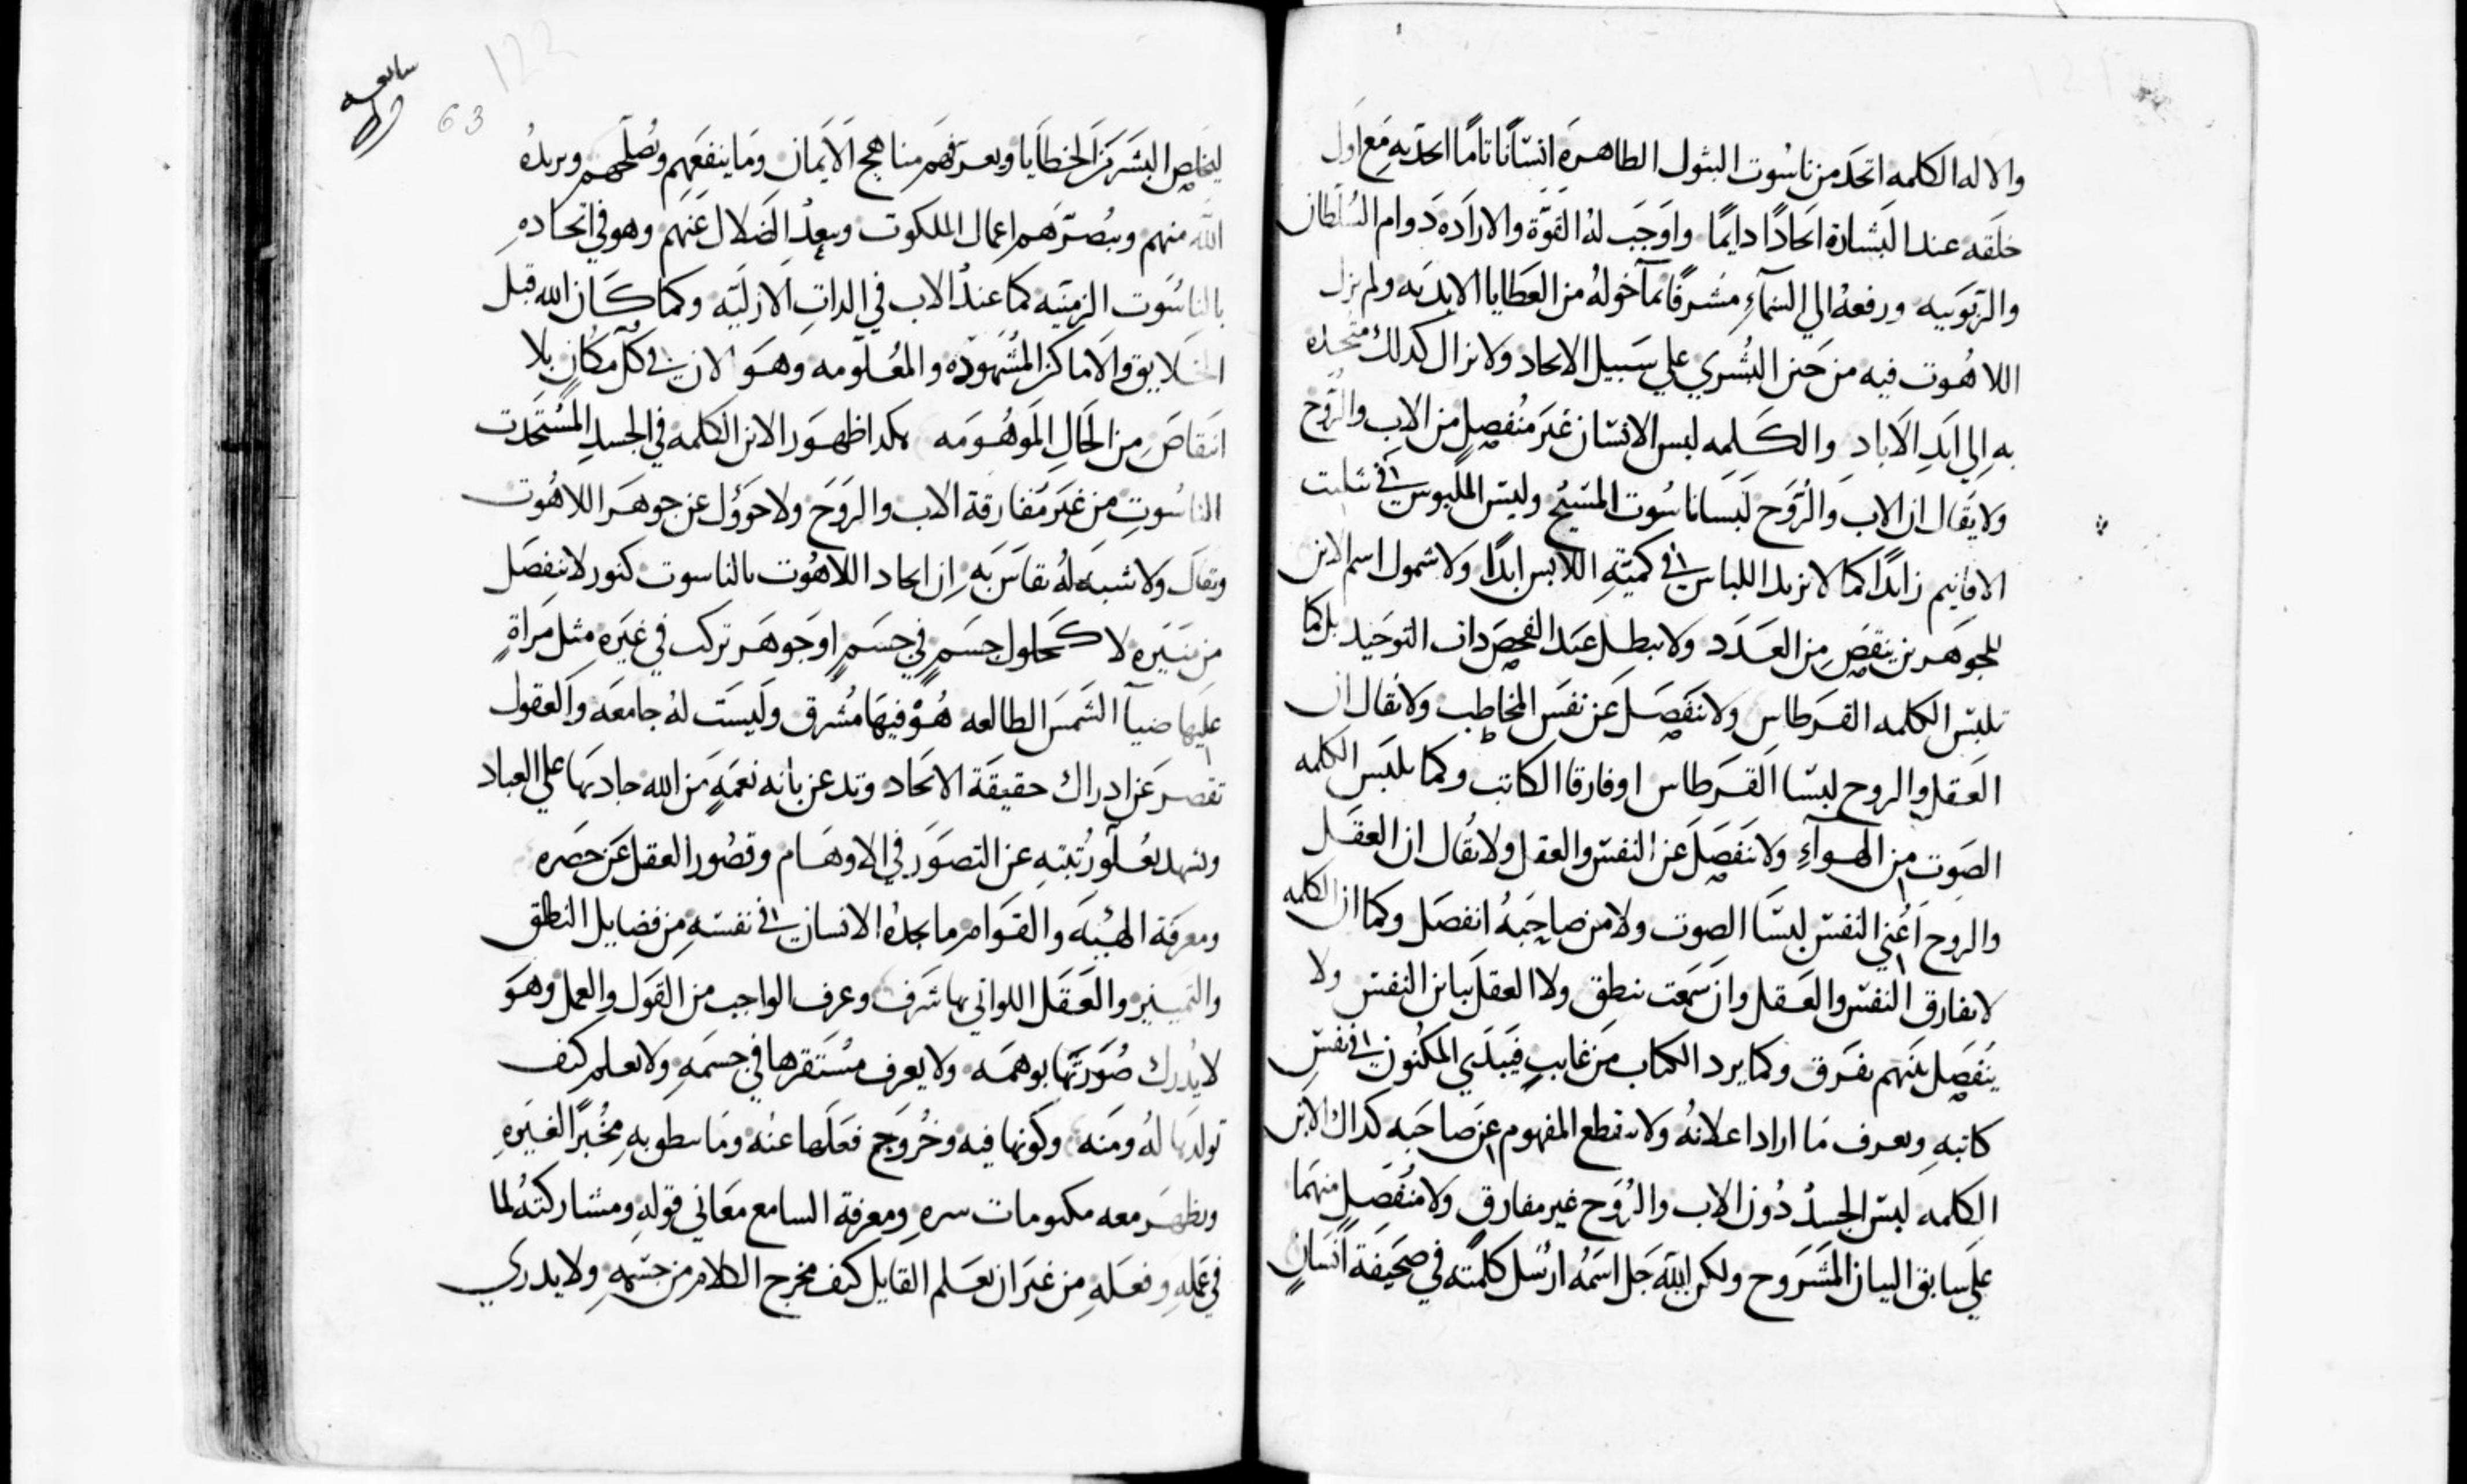 والاله الكلمه اتحد من ناسوت البتول الطاهرة انسانا تاما اتحد به مع اول
خلقه عند البشارة اتحادا دايما واوجب له القوة والارادة دوام السلطان
والربوبيه ورفعه الى السمآء مشرفا بمآ خوله من العطايا الابديه ولم يزل
اللاهوت فيه من حين البشري علي سبيل الاتحاد ولا نزال كدلك متحده
به الي ابد الاباد والكلمه لبس الانسان غير منفصل من الاب والروح
ولا يقال ان الاب والروح لبسا ناسوت المسيح وليس الملبوس في تثليت
الاقانيم زايدا كما لا نزيد اللباس في كمية اللابس ابدا ولا شمول اسم الابن
للجوهرين ينقص من العدد ولا يبطل عند الفحص دات التوحيد بل كما
تلبس الكلمه القرطاس ولا تنفصل عن نفس المخاطب ولا يقال ان
العقل والروح لبسا القرطاس او فارقا الكاتب وكما تلبس الكلمه
الصوت من الهوآء ولا تنفصل عن النفس والعقل ولا يقال ان العقل
والروح اعني النفس لبسا الصوت ولا من صاحبه انفصل وكما ان الكلمه
لا تفارق النفس والعقل وان سمعت بنطق ولا العقل يباين النفس ولا
ينفصل بينهم بفرق وكما يرد الكتاب من غايب فيبدي المكنون في نفس
كاتبه ويعرف ما اراد اعلانه ولا ينقطع المفهوم عن صاحبه كداك الابن
الكلمه لبس الجسد دون الاب والروح غير مفارق ولا منفصل منهما
علي سابق البيان المشروح ولكن الله جل اسمه ارسل كلمته في صحيفة انسان
سابعه
63
122
ليخلص البشر من الخطايا ويعرفهم مناهج الايمان وما ينفعهم ويصلحهم ويريده
الله منهم ويبصرهم اعمال الملكوت ويبعد الضلال عنهم وهو في اتحاده
بالناسوت الزمنيه كما عند الاب في الدات الازليه وكما كان الله قبل
الخلايق والاماكن المشهوده والمعلومه وهو الان في كل مكان بلا
انتقاص من الحال الموهومه هكدا ظهور الابن الكلمه في الجسد المستحدت
الناسوت من غير مفارقة الاب والروح ولا حوول عن جوهر اللاهوت
ويقال ولا شبه له يقاس به ان اتحاد اللاهوت بالناسوت كنور لا ينفصل
من منيره لا كحلول جسم في جسم او جوهر تركب في غيره مثل مراة
عليها ضيآ الشمس الطالعه هو فيها مشرق وليست له جامعه والعقول
تقصر عن ادراك حقيقة الاتحاد وتدعن بانه نعمه من الله جاد بها علي العباد
وتشهد بعلو رتبته عن التصور في الاوهام وقصور العقل عن حصره
ومعرفة الهيئه والقوام ما يجده الانسان في نفسه من فضايل النطق
والتمييز والعقل اللواتي بها شرف وعرف الواجب من القول والعمل وهو
لا يدرك صورتها بوهمه ولا يعرف مستقرها في جسمه ولا يعلم كيف
تولدها له ومنه وكونها فيه وخروج فعلها عنه وما ينطق به مخبرا لغيره
ويظهر معه مكتومات سره ومعرفة السامع معاني قوله ومشاركته لما
في عمله وفعله من غير ان يعلم القايل كيف مخرج الكلام من جسمه ولا يدري